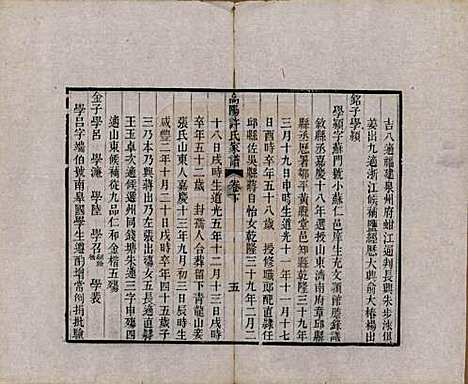 吉八適福建泉州府蚶江通判長興朱步泳俱
姜出九適浙江候補鹽經歷大興俞大椿楊出
銘子學潁
學潁字蘇門號小蘇仁邑庠生充文頴館謄錄議
敘縣丞嘉慶十八年選授山東濟南府章邱縣
縣丞歷署鄒平黃縣堂邑知縣乾隆三十九年
三月十九日申時生道光十一年十一月十七
日酉時卒年五十八歲授修職郎配直隸任
邱縣佐吳縣蔣日怡女乾隆三十九年二月二
高陽許氏家譜 卷下 五
十八日戌時生道光五年十二月十三日戌時
卒年五十二歲封孺人合葬留下青龍山妾
張氏山東人嘉慶十三年九月初三日辰時生
咸豐二年十月二十日戌時卒年四十五歲子
三乃本乃興蔣出乃左張出女五長適直隸
王玉卓次適候選州同錢塘朱適三字申殤四
適山東候補從九品仁和金楷五殤
金子學呂 學濂 學陸 學召 學裴
學呂字端伯號南皐國學生道酌增常例捐批驗